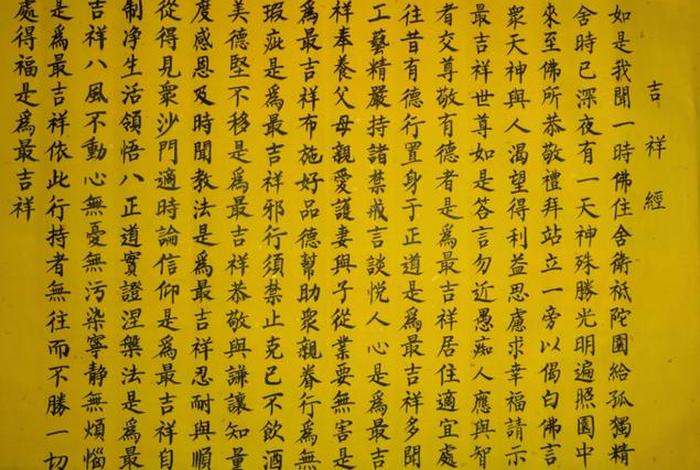 吉祥經
如是我聞一時佛住舍衛祗陀園給孤獨精
舍時已深夜有一天神殊勝光明遍照園中
來至佛所恭敬禮拜站立一旁以偈白佛言
衆天神與人渴望得利益思慮求幸福請示
最吉祥世尊如是答言勿近愚痴人應與智
者交尊敬有德者是爲最吉祥居住適宜處
往昔有德行置身于正道是爲最吉祥多聞
工藝精嚴持諸禁戒言談悦人心是爲最吉
祥奉養父母親愛護妻與子從業要無害是
爲最吉祥布施好品德幫助衆親眷行爲無
瑕疵是爲最吉祥邪行須禁止克己不飲酒
美德堅不移是爲最吉祥恭敬與謙讓知量
度感恩及時聞教法是爲最吉祥忍耐與順
從得見衆沙門適時論信仰是爲最吉祥自
制净生活領悟八正道實證涅槃法是爲最
吉祥八風不動心無憂無污染寧静無煩惱
是爲最吉祥依此行持者無往而不勝一切
處得福是爲最吉祥